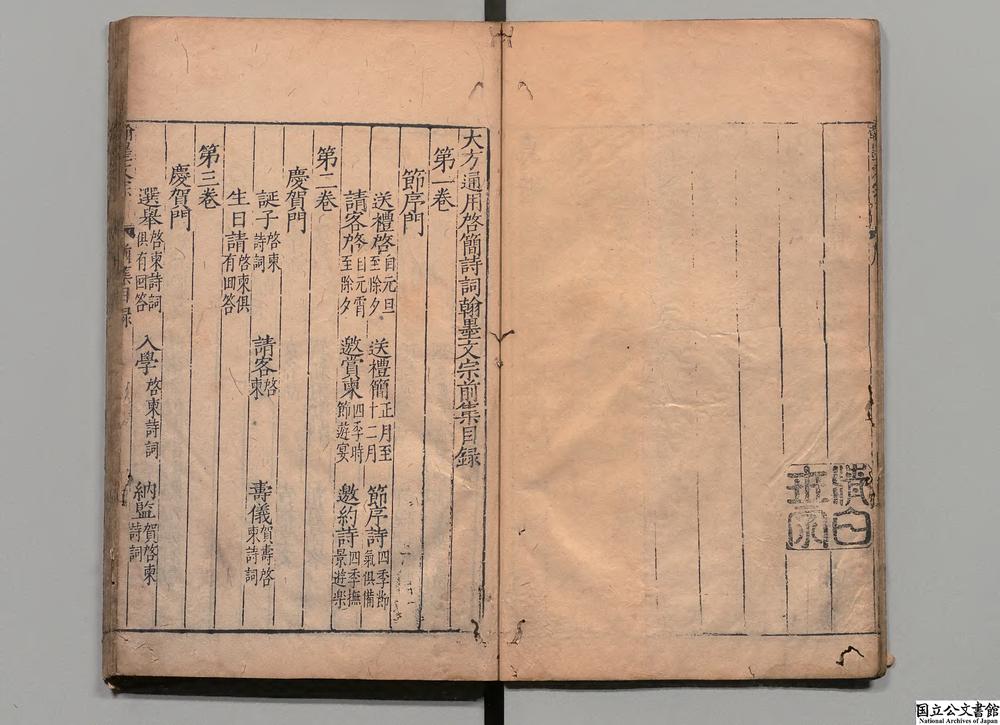 大方通用啓簡詩詞翰墨文宗前集目録
第一卷
節序門
送禮啓自元旦至除夕 送禮簡正月至十二月 節序詩四季節氣俱備
請客啓自元宵至除夕 邀賞柬四季時節遊宴 邀約詩四季撫景遊樂
第二卷
慶賀門
誕子啓柬詩詞 請客啓柬 壽儀賀壽啓柬詩詞
生日請啓柬俱有回答
第三卷
慶賀門
選舉啓柬詩詞俱有回答 入學啓柬詩詞 納監賀啓柬詩詞
前集目録
国立公文書館
National Archives of Japan